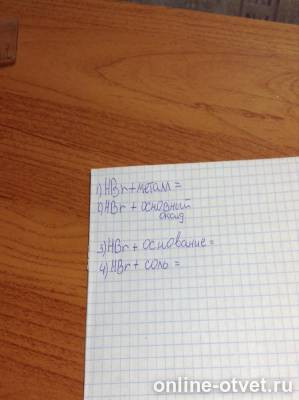 1) HBr + метал =
2) HBr + основний
оксид
3) HBr + основание =
4) HBr + соль =
online-otvet.ru